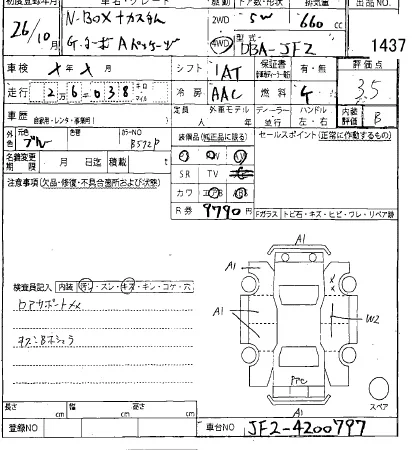 初度登録年月 車名・グレード 駆動 ドア数・形状 排気量 出品NO.
26/10月 N-BOX+カスタム 2WD 5W 660 cc
G.ターボ Aパッケージ 4WD 型式 DBA-JF2 1437
車検 X年X月 シフト IAT 保証書 有・無 評価点
走行 26038 キロ マイル 冷房 AAC 燃料 G 3.5
車歴 自家用・レンタ・事業用 定員 外車モデル ディーラー 並行 ハンドル 左・右 内装評価 B
外色 元色 ブルー 色替 カラーNO B592P 装備品(純正品に限る) セールスポイント(正常に作動するもの)
名義変更期限 月 日迄 積載 t SR TV
注意事項(欠品・修復・不具合箇所および状態) カワ エアB ABS
R券 9790円 Fガラス トビ石・キズ・ヒビ・ワレ・リペア跡
A1
A1
検査員記入 内装 汚レ・スレ・キズ・キレ・コゲ・穴
A1
W2
PTC
A1
スペア
長さ cm 幅 cm 高さ cm
登録NO 車台NO JF2-4200797